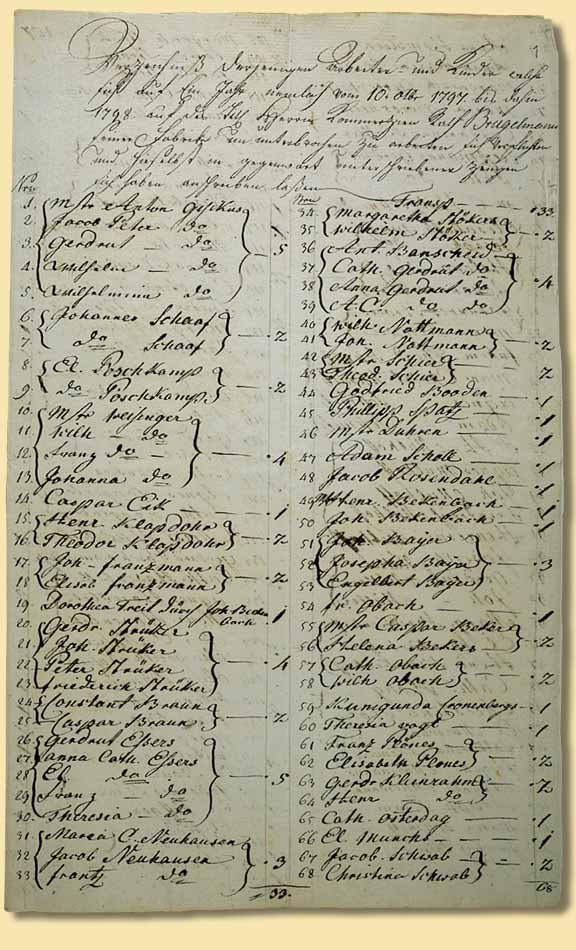 Verzeichniß derjenigen Arbeiter und Kinder welche
sich auf Ein Jahr, nemlich vom 10. 8tbr 1797 bis dahin
1798 auf die Herrn Kommerzien Rath Brügelmann
seiner Fabrick zu arbeiten sich verpflichten
und daselbst in gegenwart unterschriebener Zeugen
sich haben anschreiben laßen
Nro
1. Mstr Anton Gischus
2. Jacob Peter do
3. Gerdrut — do — 5
4. Wilhelm — do
5. Wilhelmina do
6. Johannes Schaaf
7. do Schaaf — 2
8. El. Poschkamp
9. do Poschkamp — 2
10. Mstr Weisinger
11. Wilh — do
12. Franz do — 4
13. Johanna do
14. Caspar Eik — 1
15. Henr Klapdohr
16. Theodor Klapdohr — 2
17. Joh. franzmann
18. Elisab franzmann — 2
19. Dorothea Treit durch Joh Beken
bach — 1
20. Gerdr. Strüker
21. Joh. Strüker
22. Peter Strüker — 4
23. friederich Strüker
24. Constant Braun
25. Caspar Braun — 2
26. Gerdrut Essers
27. anna Cath. Essers
28. El. do — 5
29. Franz — do
30. Theresia — do
31. Maria C. Neuhausen
32. Jacob Neuhausen — 3
33. frantz do
33.
Nro Transp — 33
34. Margaretha Stökers
35. Wilhelm Stöker — 2
36. Ant. Banscheid
37. Cath. Gerdrut do
38. Anna Gerdrut do — 4
39. A.C. do do
40. Wilh Nottmann
41. Joh. Nottmann — 2
42. Mstr Schier
43. Theod. Schier — 2
44. Godfried Booden — 1
45. Phillipp Spatz — 1
46. Mstr Duhren — 1
47. Adam Scholl — 1
48. Jacob Rosendahl — 1
49. Henr. Bekenbach — 1
50. Joh. Bekenbach — 1
51. Joh. Bajer
52. Josepha Bajer — 3
53. Engelbert Bajer
54. fr. Obach
55. Mstr Caspar Beker
56. Helena Bekers — 2
57. Cath. Obach
58. Wilh Obach — 2
59. Kunigunda Cronenbergs — 1
60. Theresia vogt — 1
61. Franz Plönes
62. Elisabeth Plönes — 2
63. Gerdr. Kleinrahm
64. Henr do — 2
65. Cath. Osterdag — 1
66. El. Munchs — 1
67. Jacob. Schwab
68. Christina Schwab — 2
68